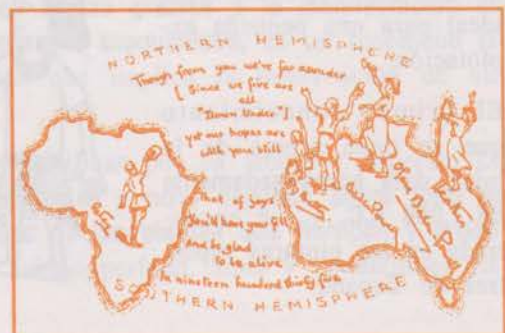 NORTHERN HEMISPHERE
Though from you we've far asunder
[Since we five are
all
"Down Under"]
yet our hopes are
with you still
that of joys
you'd have your fill
And be glad
to be alive
In nineteen hundred thirty five
SOUTHERN HEMISPHERE